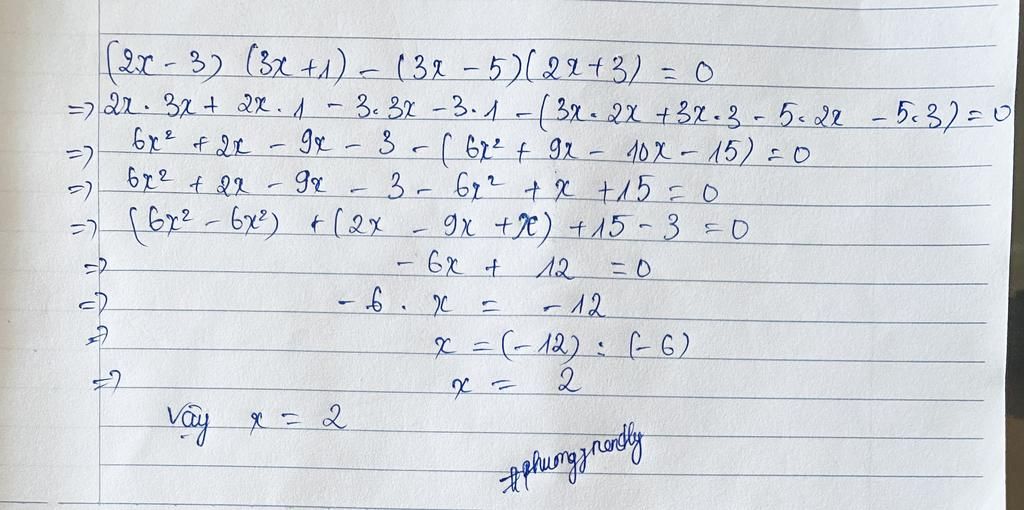 (2x - 3) (3x + 1) - (3x - 5)(2x + 3) = 0
=> 2x . 3x + 2x . 1 - 3.3x - 3.1 - (3x.2x + 3x.3 - 5.2x - 5.3) = 0
=> 6x² + 2x - 9x - 3 - (6x² + 9x - 10x - 15) = 0
=> 6x² + 2x - 9x - 3 - 6x² + x + 15 = 0
=> (6x² - 6x²) + (2x - 9x + x) + 15 - 3 = 0
=> - 6x + 12 = 0
=> - 6 . x = - 12
=> x = (-12) : (-6)
=> x = 2
Vậy x = 2